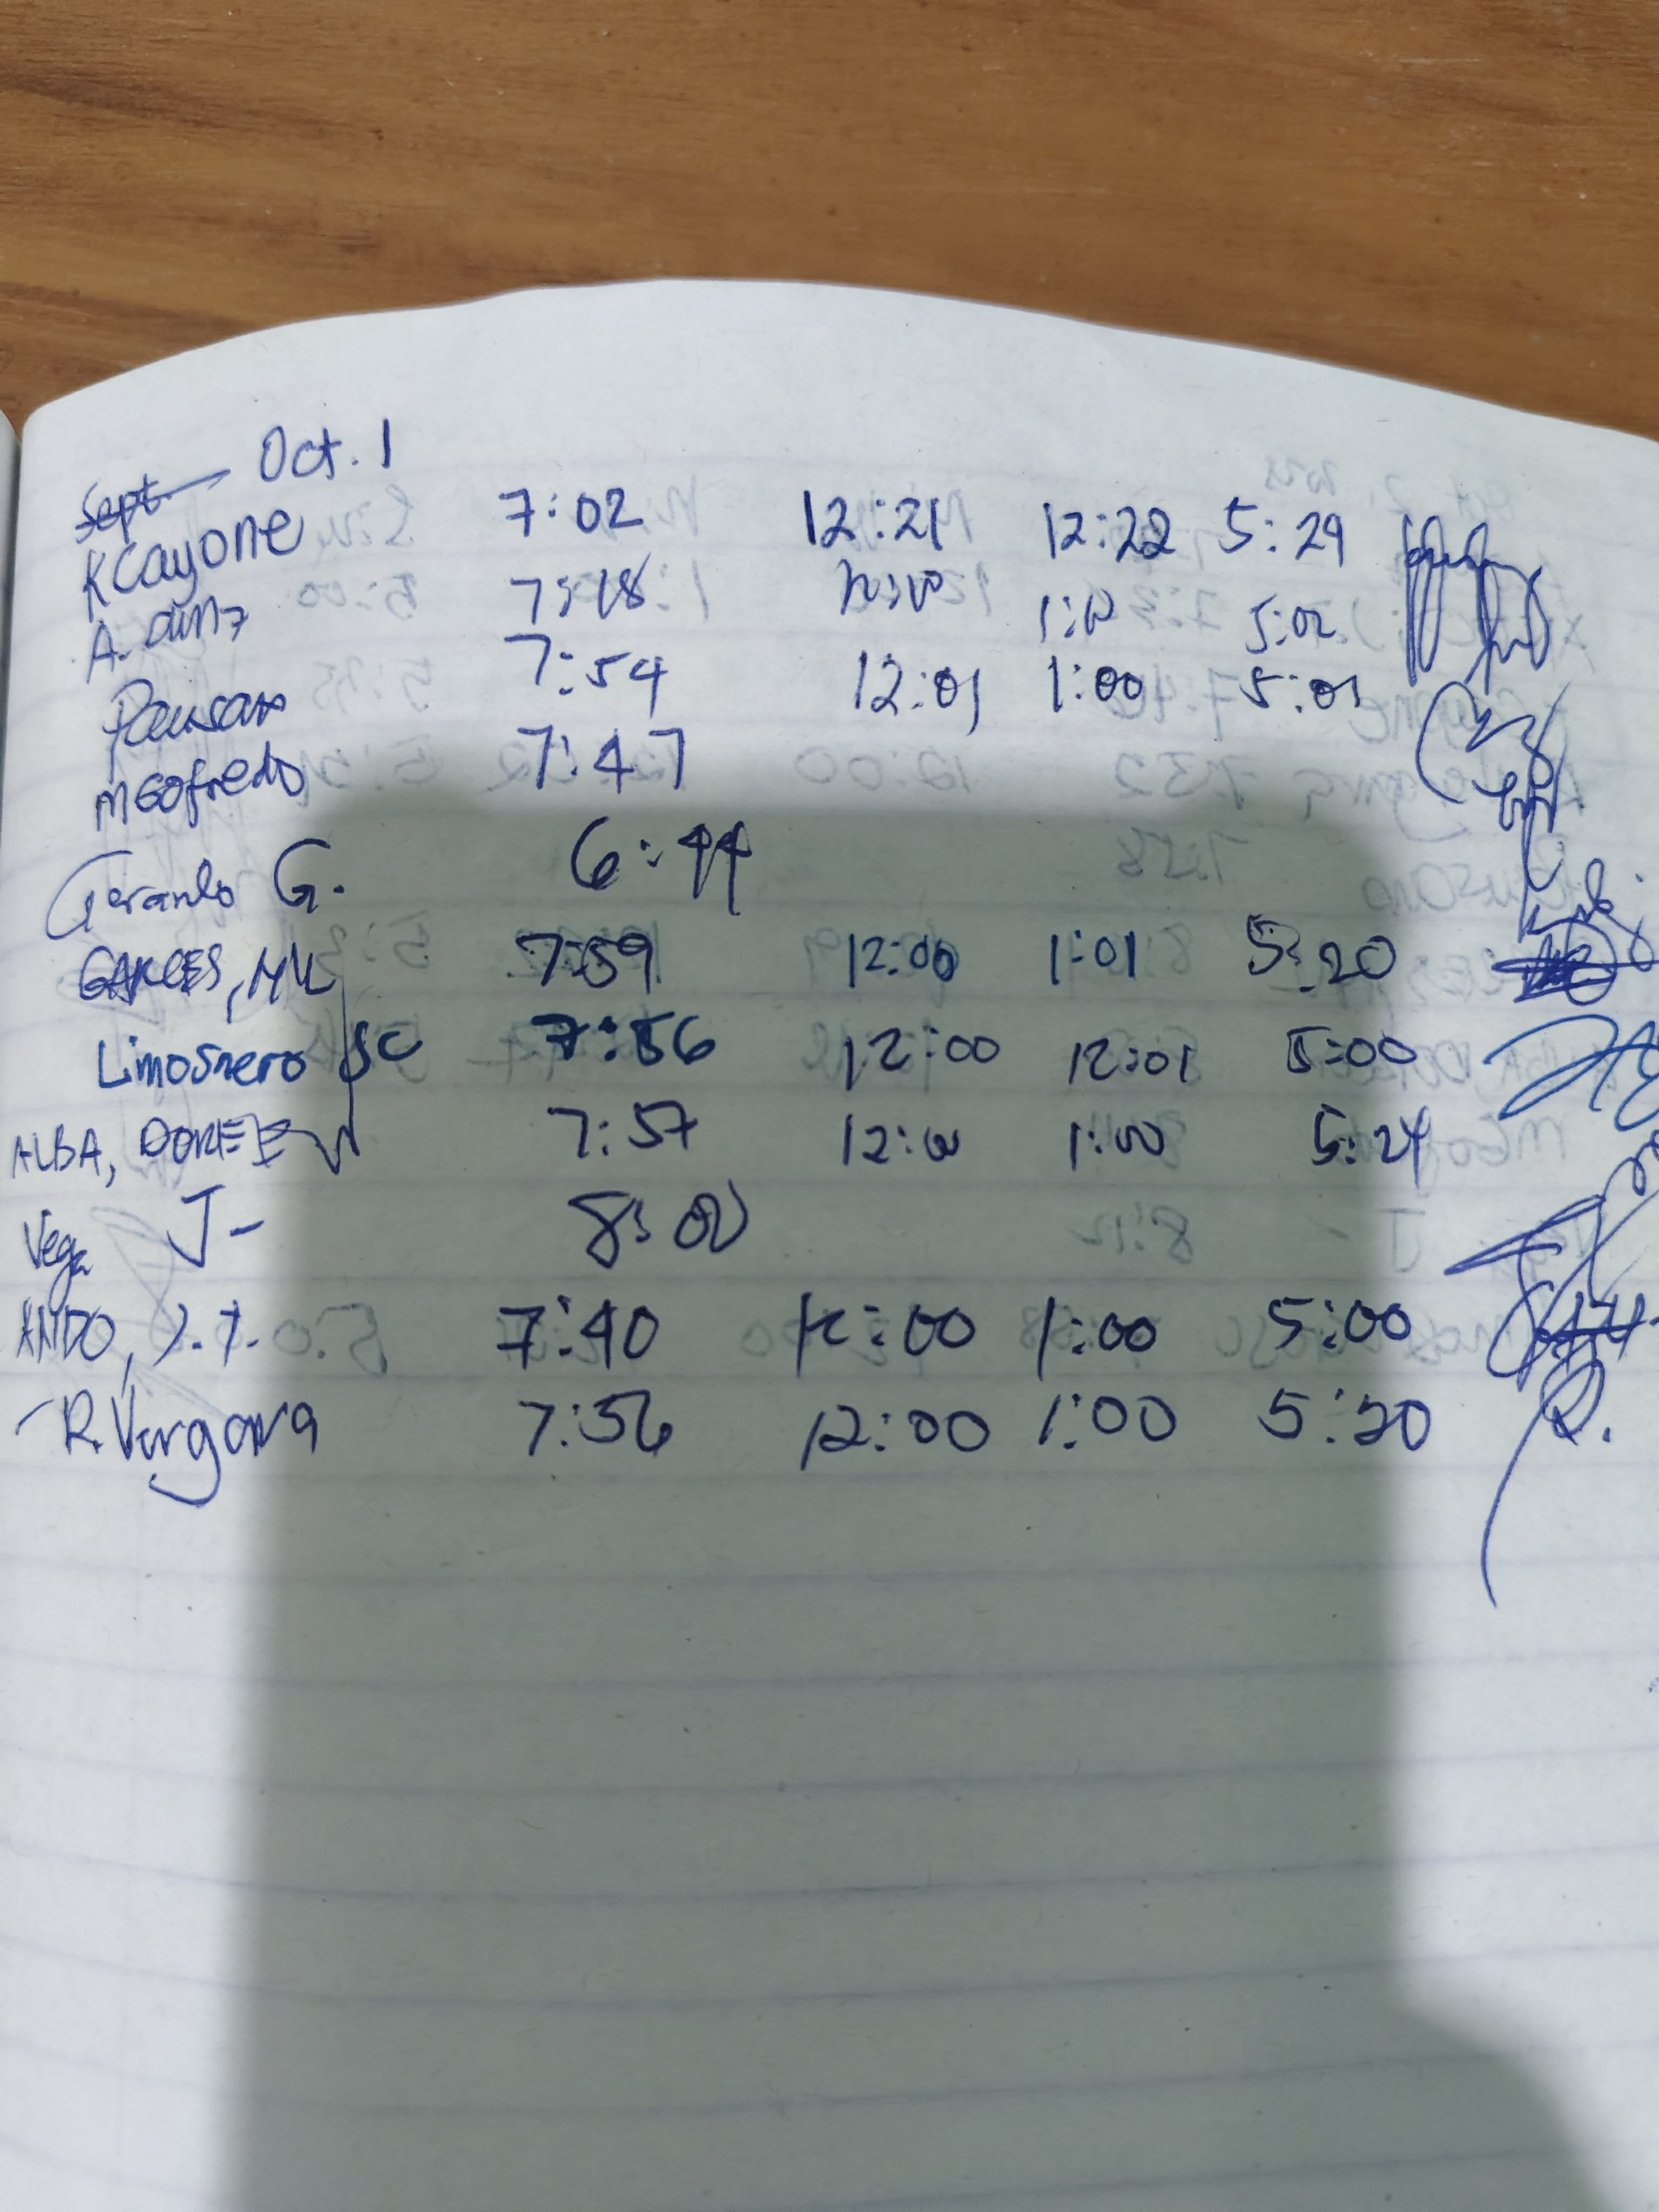 Sept. Oct. 1
KCayone 7:02 12:21 12:22 5:29
A. 7:18 1:00 5:02
7:54 12:01 1:00 5:01
MGofredo 7:47
Geraldo G. 6:44
GARCES, MK 7:59 12:00 1:01 5:20
Limosnero JC 7:56 12:00 12:01 5:00
ALBA, DOREEN 7:57 12:00 1:00 5:24
Vega J- 8:00
ANDO, J.T. 7:40 12:00 1:00 5:00
R. Vergara 7:56 12:00 1:00 5:20